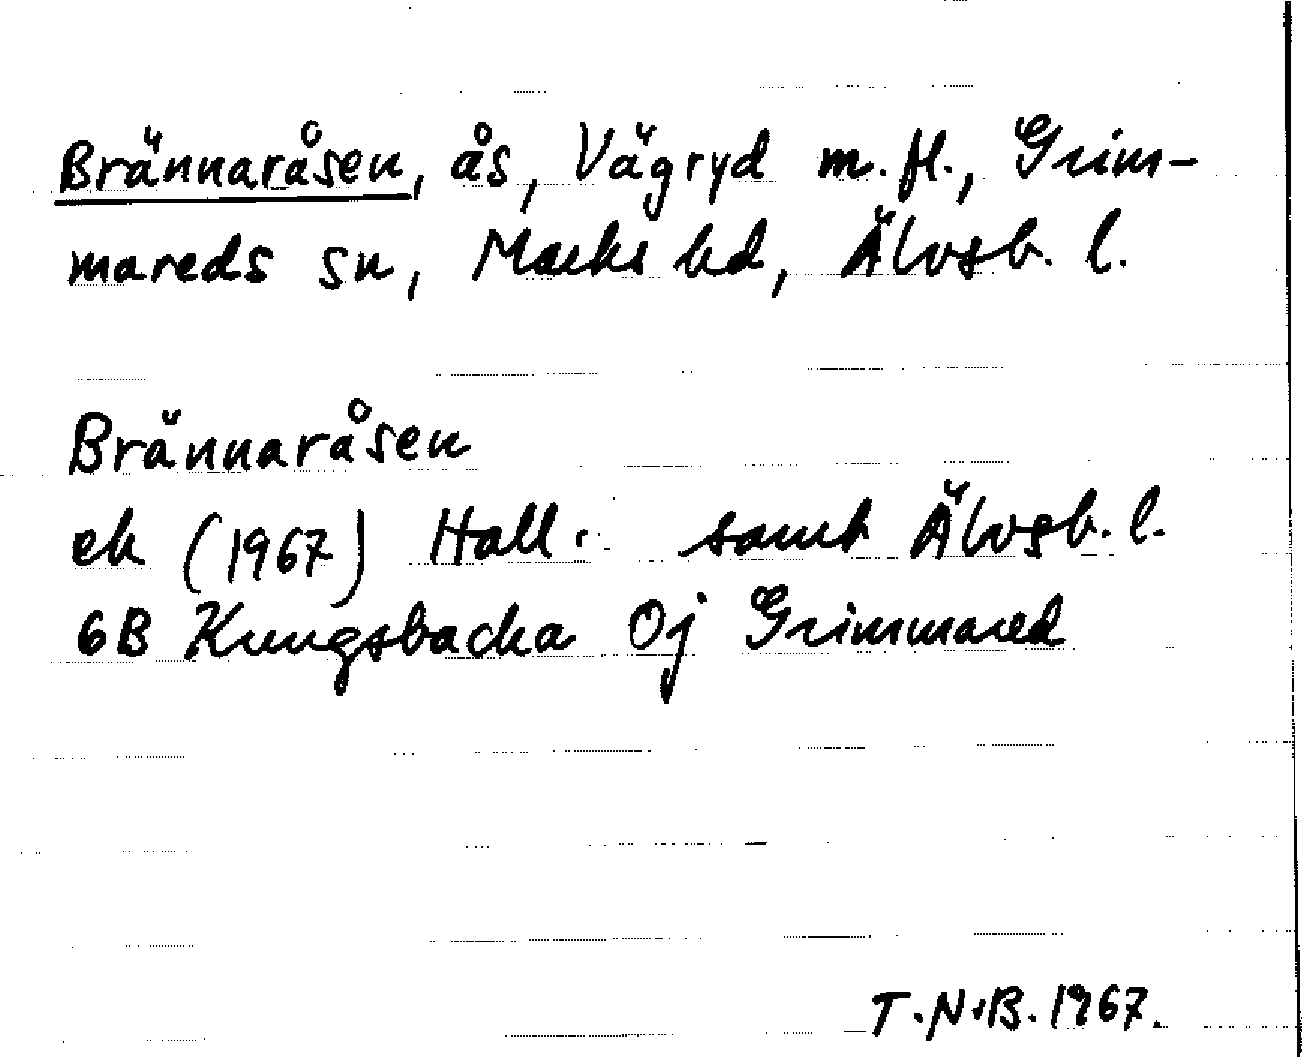 Brännaråsen, ås, Vägryd m.fl., Grim-
mareds sn, Marks hd, Älvsb. l.
Brännaråsen
ek (1967) Hall. samt Älvsb. l.
6B Kungsbacka Oj Grimmared
T.N.B. 1967.